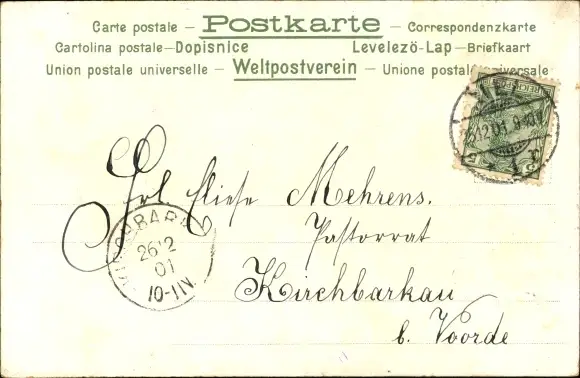 Carte postale – Postkarte – Correspondenzkarte
Cartolina postale–Dopisnice Levelező-Lap–Briefkaart
Union postale universelle – Weltpostverein – Unione postale universale
12.01.9
* 1 r
5 5
Frl. Eliese Mehrens.
Pastorrat
Kirchbarkau
b. Voorde
26 12
01
10-11V.